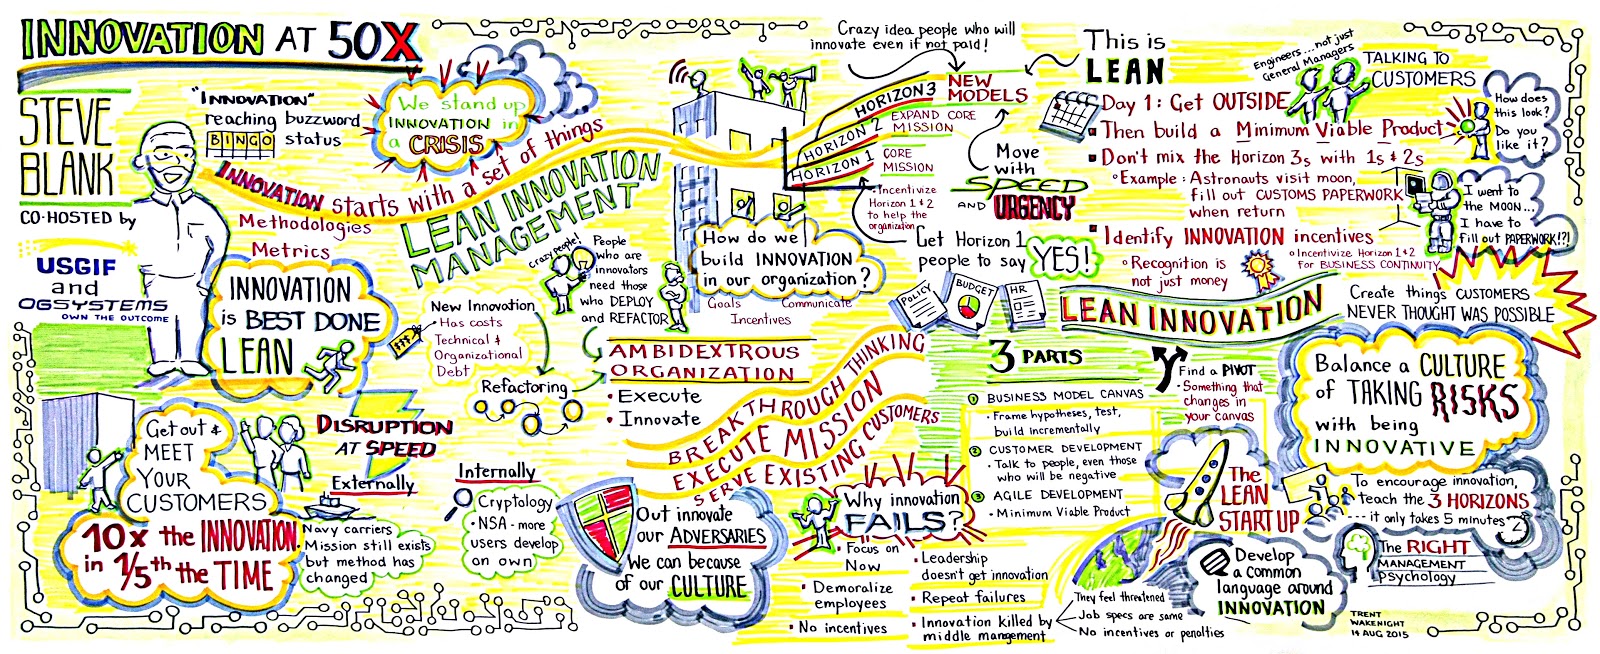 INNOVATION AT 50X
STEVE
BLANK
CO-HOSTED by
USGIF
and
OGSYSTEMS
OWN THE OUTCOME
"INNOVATION"
reaching buzzword
BINGO status
We stand up
INNOVATION in
a CRISIS
INNOVATION starts with a set of things
Methodologies
Metrics
LEAN INNOVATION
MANAGEMENT
INNOVATION
is BEST DONE
LEAN
Get out &
MEET
YOUR
CUSTOMERS
10x the INNOVATION
in 1/5th the TIME
DISRUPTION
AT SPEED
Externally
Navy carriers
Mission still exists
but method has
changed
Internally
Cryptology
• NSA - more
users develop
on own
New Innovation
• Has costs
Technical &
Organizational
Debt
Refactoring
Crazy people!
People
who are
innovators
need those
who DEPLOY
and REFACTOR
AMBIDEXTROUS
ORGANIZATION
• Execute
• Innovate
Crazy idea people who will
innovate even if not paid!
HORIZON 3
NEW
MODELS
HORIZON 2
EXPAND CORE
MISSION
HORIZON 1
CORE
MISSION
• Incentivize
Horizon 1 & 2
to help the
organization
How do we
build INNOVATION
in our organization?
Goals
Communicate
Incentives
Get Horizon 1
people to say
YES!
POLICY
BUDGET
HR
Move
with
SPEED
AND URGENCY
BREAKTHROUGH THINKING
EXECUTE MISSION
SERVE EXISTING CUSTOMERS
Out innovate
our ADVERSARIES
We can because
of our CULTURE
Why innovation
FAILS?
• Focus on
Now
• Demoralize
employees
• No incentives
• Leadership
doesn't get innovation
• Repeat failures
• Innovation killed by
middle management
They feel threatened
Job specs are same
No incentives or penalties
This is
LEAN
Engineers...not just
General Managers
TALKING TO
CUSTOMERS
Day 1: Get OUTSIDE
Then build a Minimum Viable Product
How does
this look?
Do you
like it?
Don't mix the Horizon 3s with 1s & 2s
• Example: Astronauts visit moon,
fill out CUSTOMS PAPERWORK
when return
I went to
the MOON...
I have to
fill out PAPERWORK!?!
Identify INNOVATION incentives
• Recognition is
not just money
• Incentivize Horizon 1 & 2
for BUSINESS CONTINUITY
LEAN INNOVATION
Create things CUSTOMERS
NEVER THOUGHT WAS POSSIBLE
3 PARTS
1 BUSINESS MODEL CANVAS
• Frame hypotheses, test,
build incrementally
2 CUSTOMER DEVELOPMENT
• Talk to people, even those
who will be negative
3 AGILE DEVELOPMENT
• Minimum Viable Product
Find a PIVOT
• Something that
changes in
your canvas
The
LEAN
START UP
Balance a CULTURE
of TAKING RISKS
with being
INNOVATIVE
To encourage innovation,
teach the 3 HORIZONS
...it only takes 5 minutes
Develop
a Common
language around
INNOVATION
The RIGHT
MANAGEMENT
psychology
TRENT
WAKENIGHT
14 AUG 2015